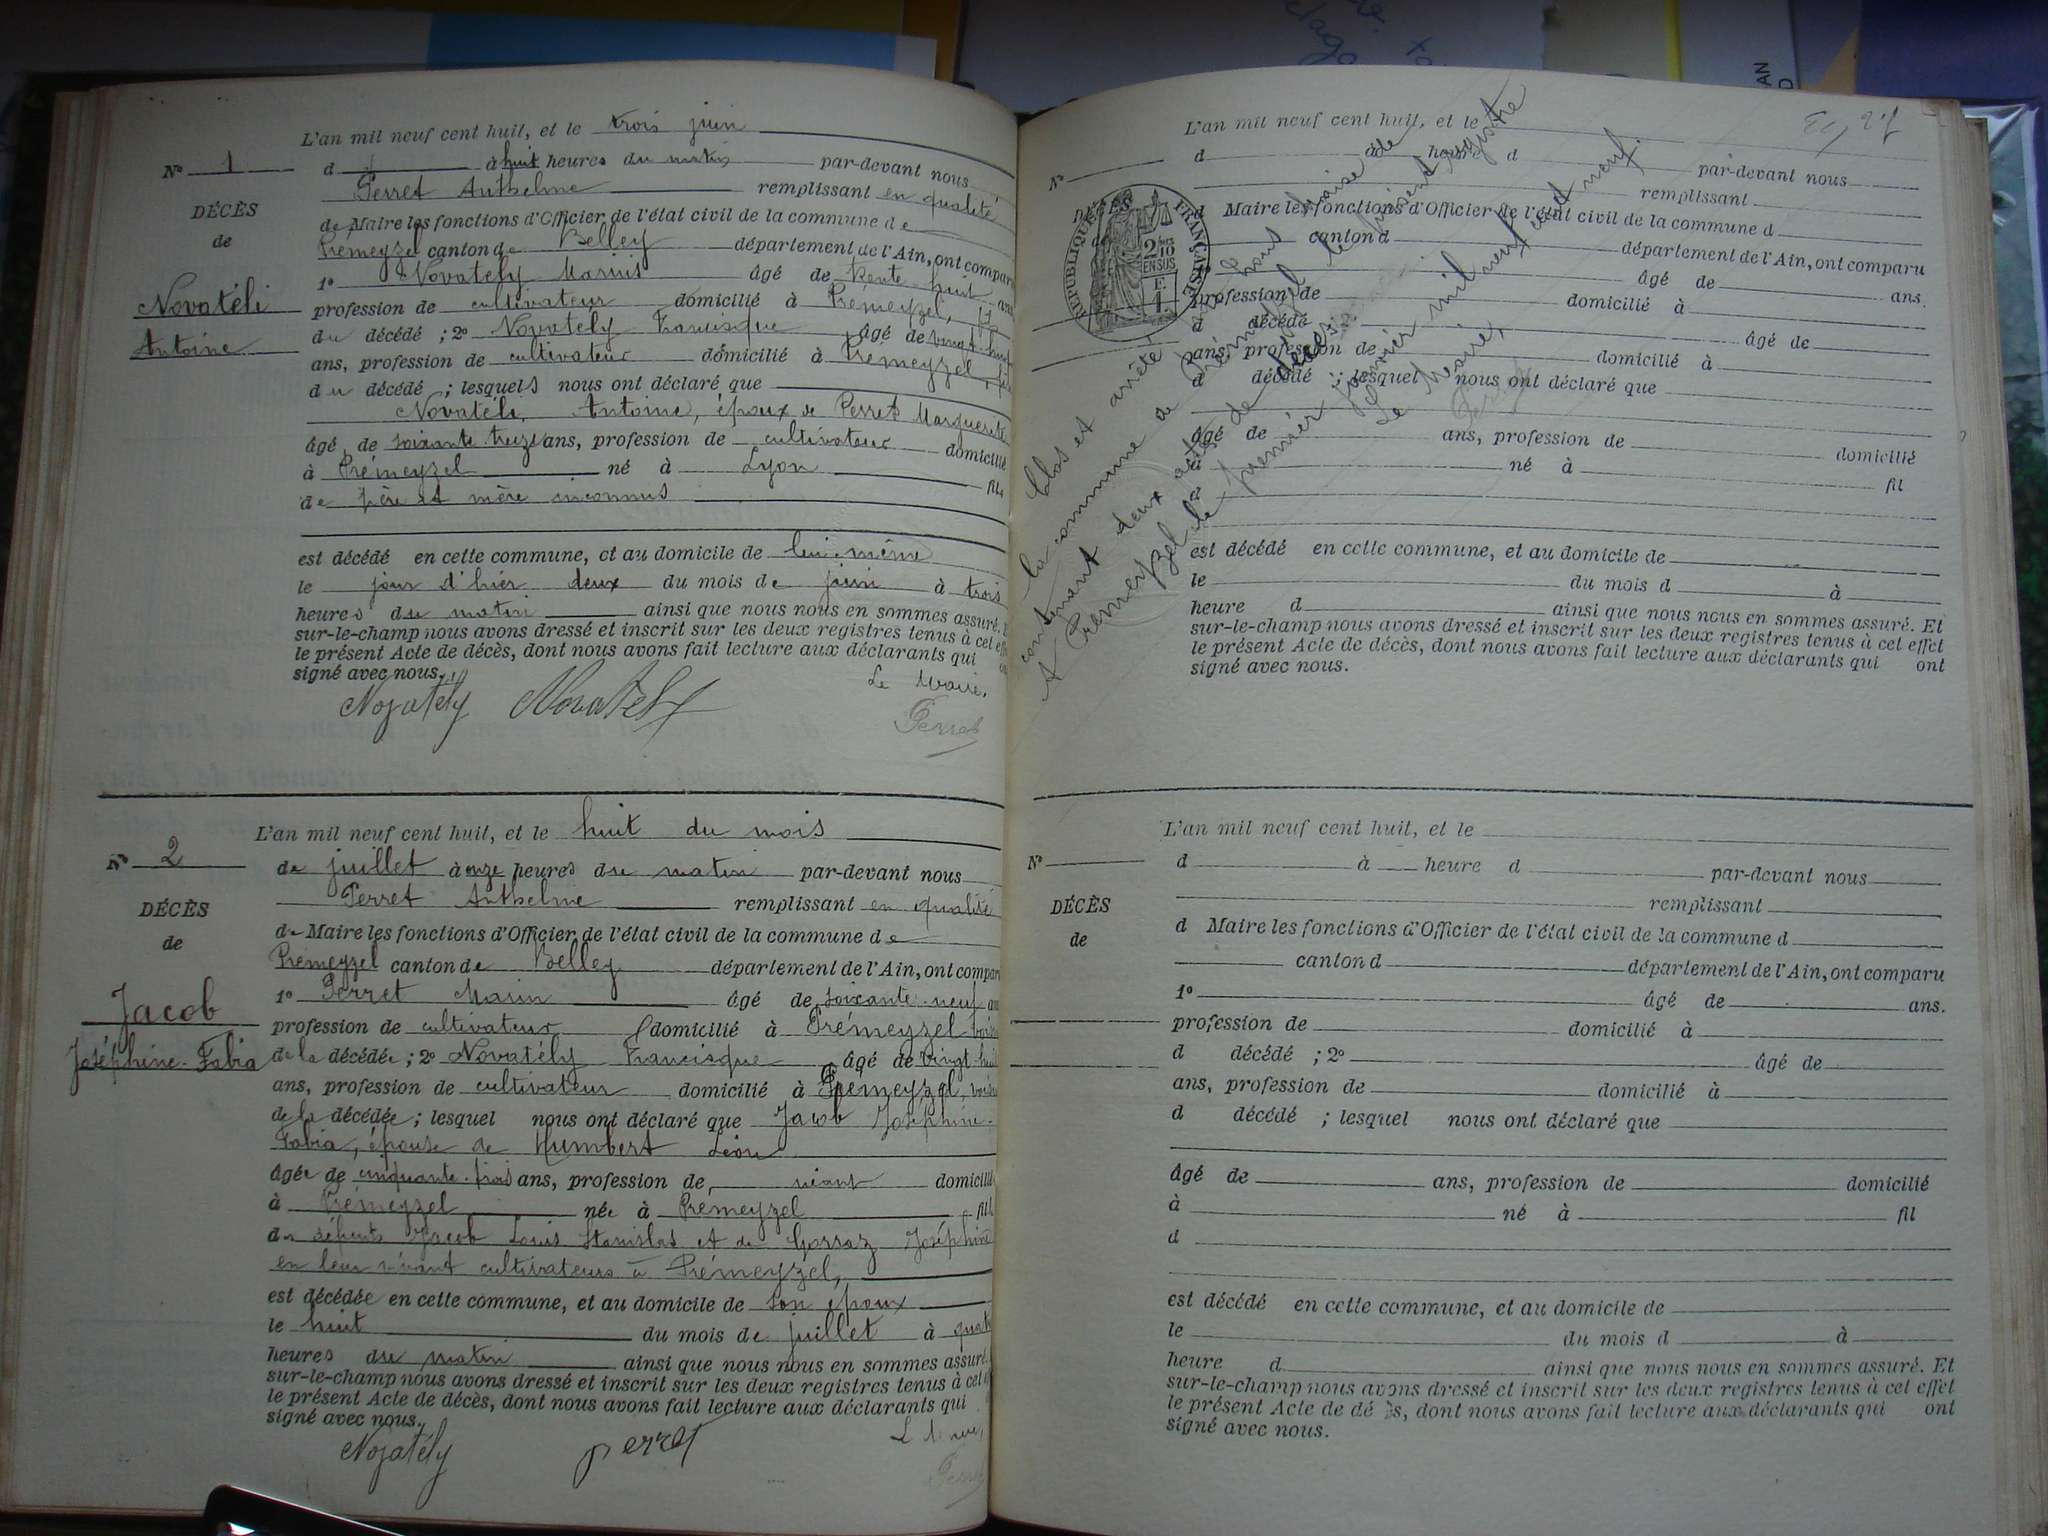 L'an mil neuf cent huit, et le trois juin
N° 1
d à huit heures du matin par-devant nous
Perret Anthelme remplissant en qualité
DÉCÈS
de
de Maire les fonctions d'Officier de l'état civil de la commune de
Prémeyzel canton de Belley département de l'Ain, ont comparu
1° Novatély Marius âgé de trente huit ans
Novatéli
Antoine
profession de cultivateur domicilié à Prémeyzel,
du décédé ; 2° Novatély Francisque âgé de vingt huit
ans, profession de cultivateur domicilié à Prémeyzel, fils
du décédé ; lesquels nous ont déclaré que
Novatéli Antoine, époux de Perret Marguerite
âgé de soixante treize ans, profession de cultivateur domicilié
à Prémeyzel né à Lyon fils
de père et mère inconnus
est décédé en cette commune, et au domicile de lui-même
le jour d'hier deux du mois de juin à trois
heures du matin ainsi que nous nous en sommes assuré.
sur-le-champ nous avons dressé et inscrit sur les deux registres tenus à cet eff
le présent Acte de décès, dont nous avons fait lecture aux déclarants qui
signé avec nous.
Le Maire,
Novatély Novatély Perret
L'an mil neuf cent huit, et le huit du mois
N° 2
de juillet à onze heures du matin par-devant nous
Perret Anthelme remplissant en qualité
DÉCÈS
de
de Maire les fonctions d'Officier de l'état civil de la commune de
Prémeyzel canton de Belley département de l'Ain, ont compar
1° Perret Marin âgé de soixante-neuf ans
Jacob
Joséphine-Fabia
profession de cultivateur domicilié à Prémeyzel voisin
de la décédée ; 2° Novatély Francisque âgé de vingt-huit
ans, profession de cultivateur domicilié à Prémeyzel, voisin
de la décédée ; lesquel nous ont déclaré que Jacob Joséphine-
Fabia, épouse de Humbert Léon
âgée de cinquante-trois ans, profession de néant domicilié
à Prémeyzel née à Prémeyzel fill
de défunts Jacob Louis Stanislas et de Gorraz Joséphine
en leur vivant cultivateurs à Prémeyzel,
est décédée en cette commune, et au domicile de son époux
le huit du mois de juillet à quatr
heures du matin ainsi que nous nous en sommes assuré.
sur-le-champ nous avons dressé et inscrit sur les deux registres tenus à cet
le présent Acte de décès, dont nous avons fait lecture aux déclarants qui
signé avec nous.
Novatély perret Perret
L'an mil neuf cent huit, et le
N° d à heure d par-devant nous
remplissant
d Maire les fonctions d'Officier de l'état civil de la commune d
canton d département de l'Ain, ont comparu
RÉPUBLIQUE FRANÇAISE
2/10 EN SUS
âgé de ans.
profession de domicilié à
d décédé âgé de
ans, profession de domicilié à
d décédé ; lesquel nous ont déclaré que
âgé de ans, profession de domicilié
à né à fil
d
est décédé en cette commune, et au domicile de
le du mois d à
heure d ainsi que nous nous en sommes assuré. Et
sur-le-champ nous avons dressé et inscrit sur les deux registres tenus à cet effet
le présent Acte de décès, dont nous avons fait lecture aux déclarants qui ont
signé avec nous.
Clos et arrêté par nous maire de
la commune de Prémeyzel le présent registre
contenant deux actes de décès.
A Prémeyzel le premier janvier mil neuf cent neuf.
Le Maire,
Perret
L'an mil neuf cent huit, et le
N° d à heure d par-devant nous
remplissant
DÉCÈS
de
d Maire les fonctions d'Officier de l'état civil de la commune d
canton d département de l'Ain, ont comparu
1° âgé de ans.
profession de domicilié à
d décédé ; 2° âgé de
ans, profession de domicilié à
d décédé ; lesquel nous ont déclaré que
âgé de ans, profession de domicilié
à né à fil
d
est décédé en cette commune, et au domicile de
le du mois d à
heure d ainsi que nous nous en sommes assuré. Et
sur-le-champ nous avons dressé et inscrit sur les deux registres tenus à cet effet
le présent Acte de décès, dont nous avons fait lecture aux déclarants qui ont
signé avec nous.